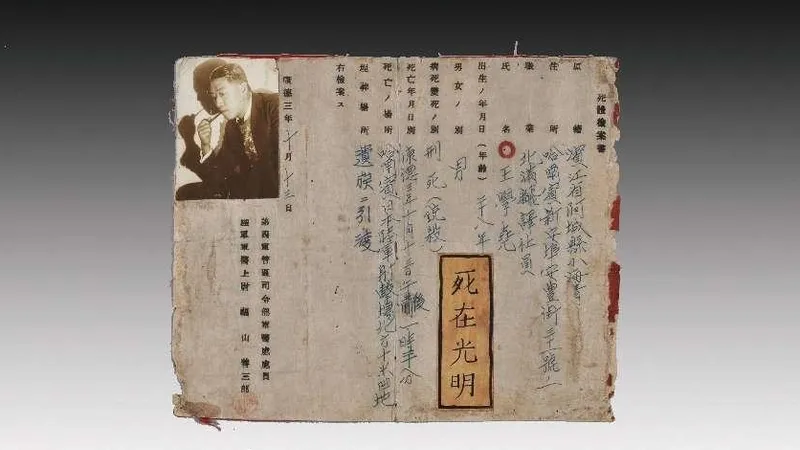 死體檢案書
原籍 濱江省阿城縣小海
住所 哈爾賓新安埠安豊街三十一號
職業 北満 社員
氏名 王學堯
出生ノ年月日（年齡） 二十八年
男女ノ別 男
病死變死ノ別 刑死（銃殺）
死亡年月日別 康德三年十月十三日午後一時 八分
死亡ノ場所 哈爾賓日本陸軍射擊場北六十米凹地
埋葬場所 遺族ニ引渡
右檢案ス
康德三年十月十三日
第四軍管區司令部軍醫處處員
陸軍軍醫上尉 福山善三郎
死在光明